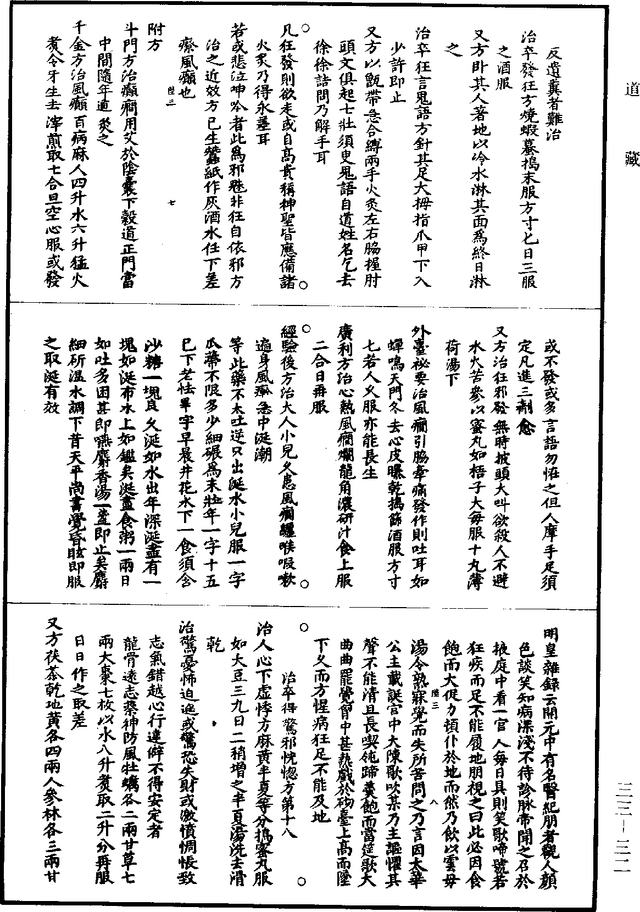 道藏
反遺糞者難治
治卒發狂方燒蝦蟇搗末服方寸匕日三服
之酒服
又方卧其人著地以冷水淋其面為終日淋
之
治卒狂言鬼語方針其足大拇指爪甲下入
少許即止
又方以甑帶急合縛兩手火灸左右脇握肘
頭文俱起七壯須臾鬼語自道姓名乞去
徐徐詰問乃解手耳
凡狂發則欲走或自高貴稱神聖皆應備諸
火炙乃得永差耳
若或悲泣呻吟者此為邪魅非狂自依邪方
治之近效方已生蠶紙作灰酒水任下差
療風癲也
陸三
七
附方
斗門方治癲癎用艾於陰囊下穀道正門當
中間隨年歲灸之
千金方治風癲百病麻人四升水六升猛火
煮令牙生去滓煎取七合旦空心服或發
或不發或多言語勿怪之但人摩手足須
定凡進三劑愈
又方治狂邪發無時披頭大叫欲殺人不避
水火苦參以蜜丸如梧子大每服十丸薄
荷湯下
外臺祕要治風癎引脇牽痛發作則吐耳如
蟬鳴天門冬去心皮曝乾搗篩酒服方寸
七若人久服亦能長生
廣利方治心熱風癎爛龍角濃研汁食上服
二合日再服
經驗後方治大人小兒久患風癎纏喉㗋嗽
遍身風𤺋急中涎潮
等此藥不太吐逆只出涎水小兒服一字
瓜蔕不限多少細碾為末壯年一字十五
已下老怯半字早晨井花水下一食須含
沙糖一塊良久涎如水出年深涎盡有一
塊如涎布水上如鑑矣涎盡食粥一兩日
如吐多困甚即嚥麝香湯一盞即止矣麝
細研溫水調下昔天平尚書覺昏眩即服
之取涎有效
明皇雜錄云開元中有名醫紀朋者觀人顏
色談笑知病深淺不待診脉帝聞之召於
掖庭中看一官人每日昃則笑歌啼號若
狂疾而足不能履地朋視之曰此必因食
飽而大促力頓仆於地而然乃飲以雲母
陸三
八
湯令熟寐覺而失所苦問之乃言因太華
公主載誕宮中大陳歌吹某乃主謳懼其
聲不能清且長喫㹠蹄羹飽而當筵歌大
曲曲罷覺胷中甚熱戲於砌臺上高而墜
下久而方惺病狂足不能及地
治卒得驚邪恍惚方第十八
治人心下虛悸方麻黃半夏等分搗蜜丸服
如大豆三丸日三稍增之半夏湯洗去滑
乾
治驚憂怖迫逐或驚恐失財或激憤惆悵致
志氣錯越心行違僻不得安定者
龍骨遠志茯神防風牡蠣各二兩甘草七
兩大棗七枚以水八升煮取二升分再服
日日作之取差
又方茯苓乾地黃各四兩人參桂各三兩甘
三三－三二